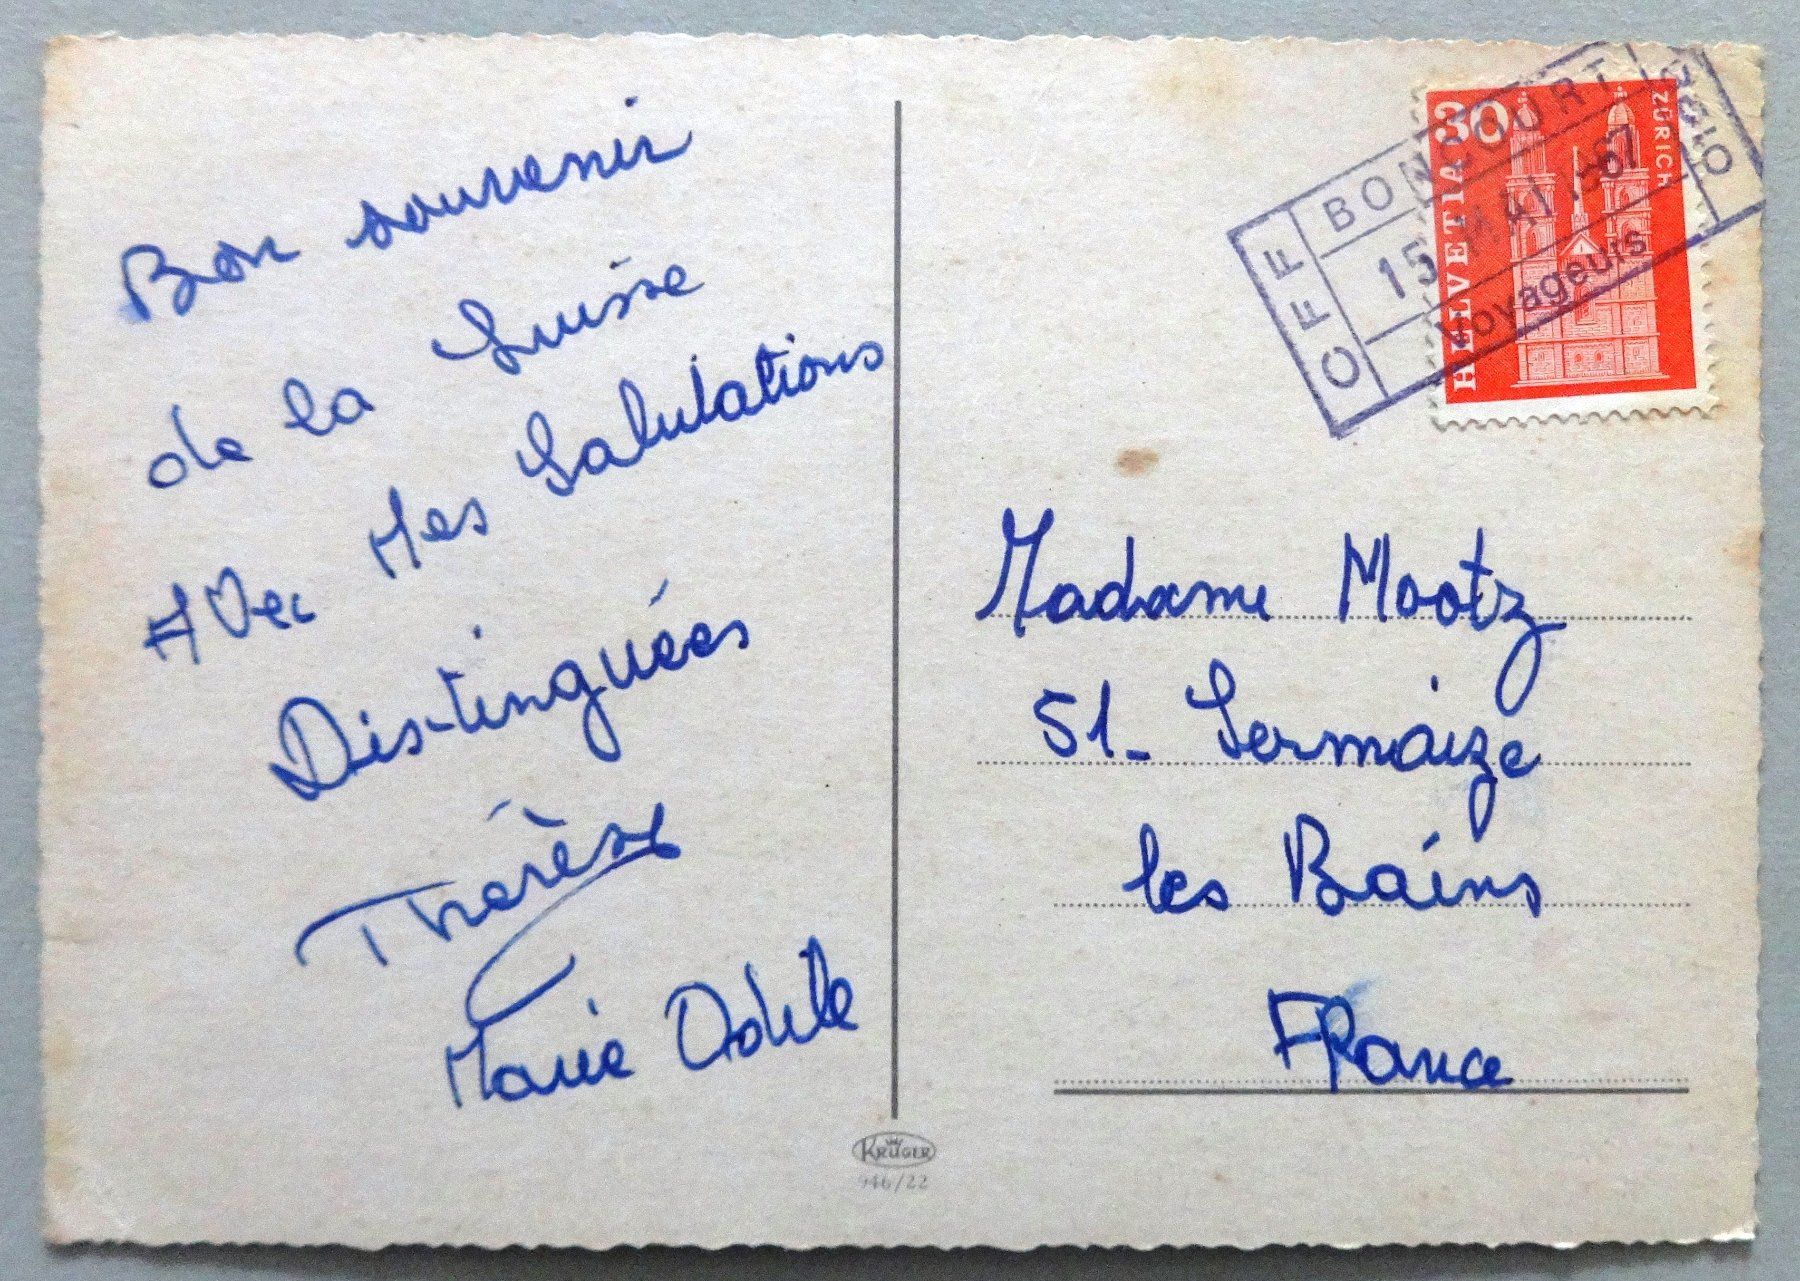 Bon souvenir
de la Suisse
Avec Mes Salutations
Distinguées
Thérèse
Marie Odile
30
HELVETIA
ZÜRICH
CFF
BONCOURT
15 MAI 1967
Voyageurs
Madame Mootz
51- Sermaize
les Bains
France
KRÜGER
946/22